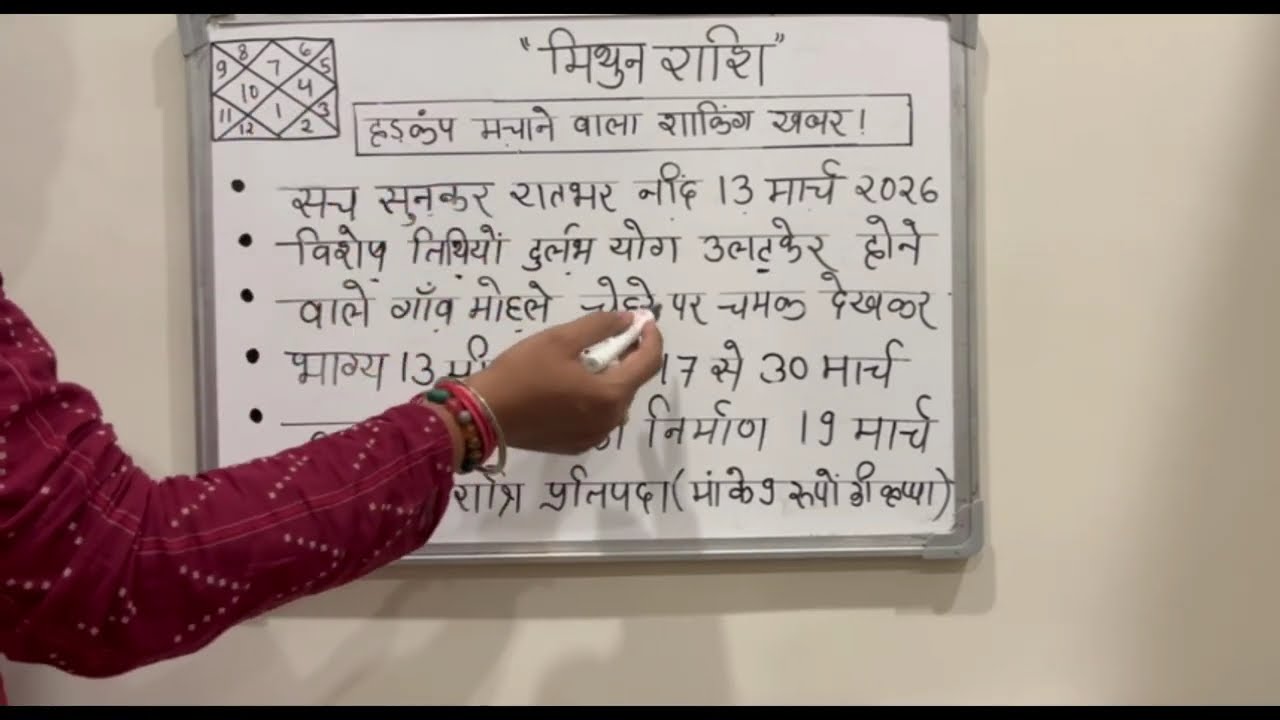 8 6
9 7 5
10 4
11 1 3
12 2
"मिथुन राशि"
हड़कंप मचाने वाला शाकिंग खबर!
• सच सुनकर रातभर नींद 13 मार्च २०२6
• विशेष तिथियों दुर्लभ योग उलटफेर होने
• वाले गाँव मोहले चेहरे पर चमक देखकर
• भाग्य 13 17 से 30 मार्च
• निर्माण 19 मार्च
प्रतिपदा (मां के 9 रूपों की कृपा)